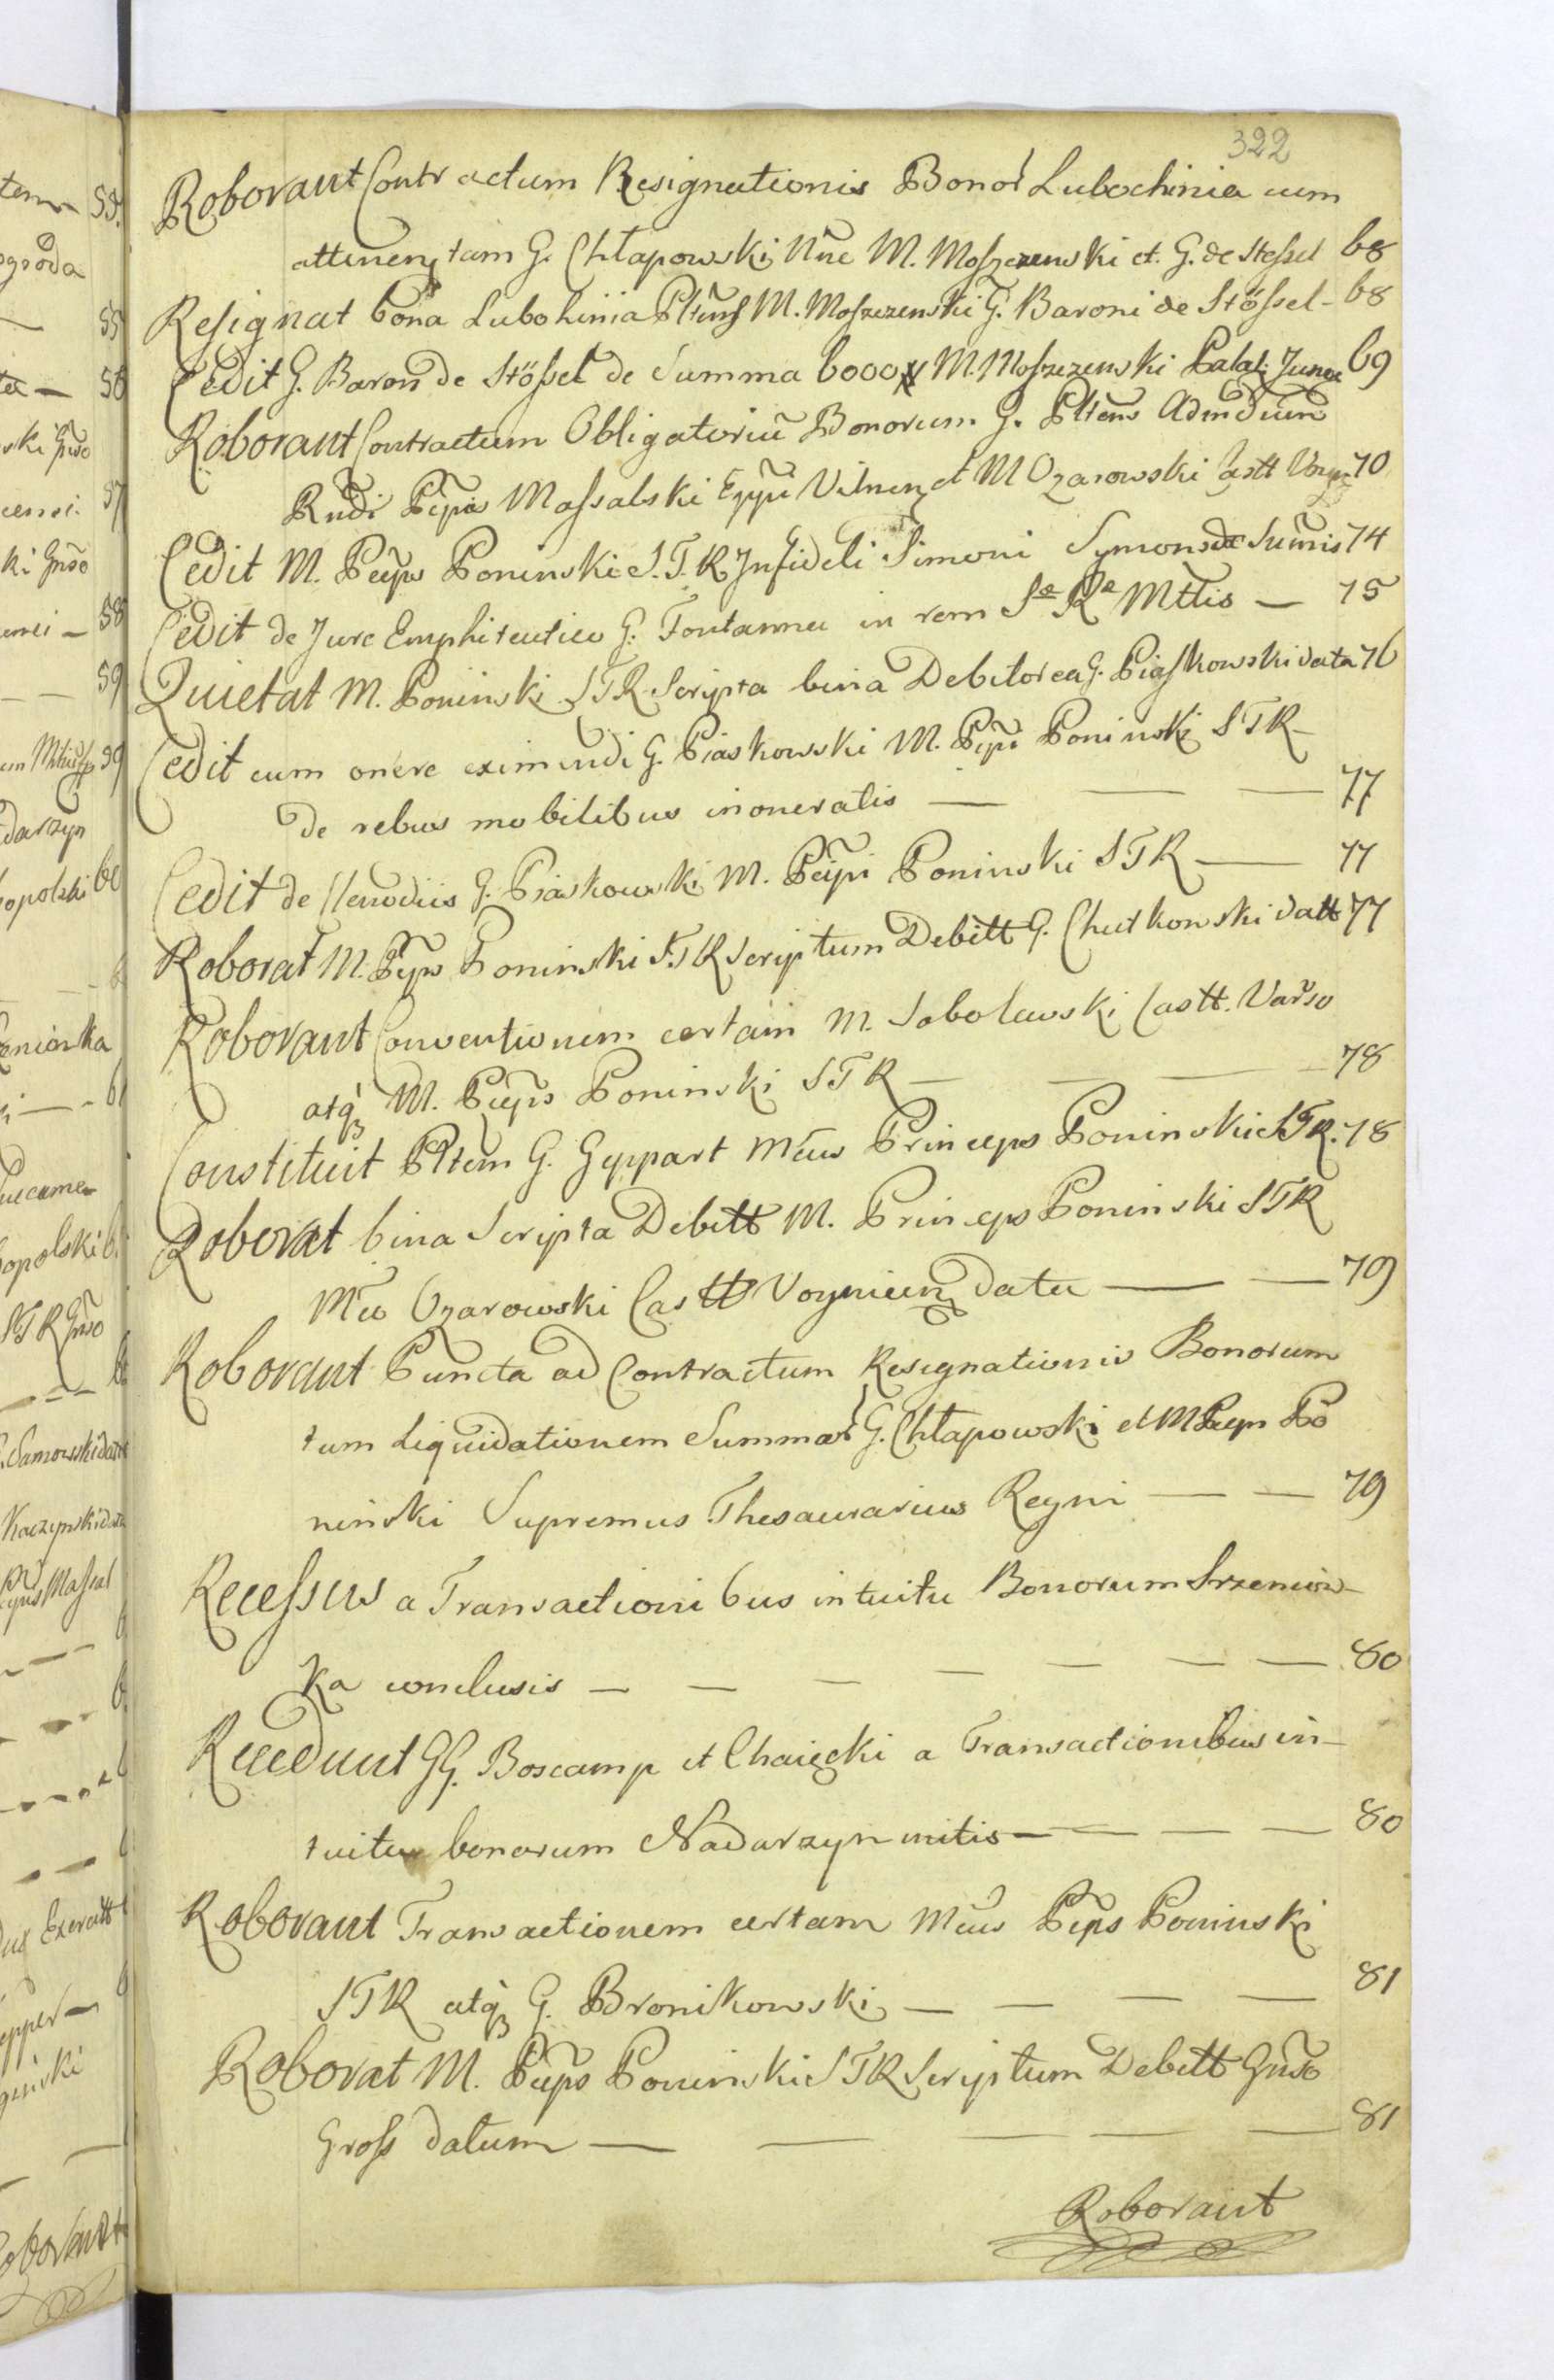 322
Roborant Contractum Resignationis Bonor Lubochinia cum
attinen tam G. Chłapowski Nne M. Moszczenski et. G. de Stessel 68
Resignat bona Lubohinia Pltens M. Moszczenski G. Baroni de Stössel - 68
Cedit G. Baron de Stössel de Summa 6000 M. Moszczenski Palat: Junge 69
Roborant Contractum Obligatoriũ Bonorum G. Pltens Admdum
Rndi Pcpis Massalski Eppi Vilnen et M Ozarowski Castt Voyn 70
Cedit M. Pceps Poninski S.T.R Infideli Simoni Symons de Sum̃is 74
Cedit de Jure Emphiteutico G. Fontanna in rem Sæ Ræ Mttis — 75
Quietat M. Poninski STR Scripta bina Debitorea G. Piaskowski data 76
Cedit cum onere eximendi G. Piaskowski M. Pcpi Poninski STR -
de rebus mobilibus inoneratis — — — 77
Cedit de Clenodiis G. Piaskowski M. Pcipi Poninski STR — 77
Roborat M. Pceps Poninski S.T.R Scriptum Debitt G. Chutkowski datt 77
Roborant Conventionem certam M. Sobolewski Castt. Varso
atq M. Pceps Poninski STR — — — 78
Constituit Pltem G. Gyppart Mcus Princeps Poninski STR. 78
Roborat bina Scripta Debitt M. Princeps Poninski STR
Mco Ozarowski Castt Voynicen data — — 79
Roborant Puncta ad Contractum Resignationis Bonorum
tum Liquidationem Summar G. Chłapowski et M Pceps Po
ninski Supremus Thesaurarius Regni — — 79
Recessus a Transactionibus intuitu Bonorum Srzenion-
Ka conclusis — — — — — — — 80
Recedunt GG. Boscamp et Chaięcki a Transactionibus in-
tuitu bonorum Nadarzyn initis — — — — 80
Roborant Transactionem certam Mcus Pceps Poninski
STR atq G. Bronikowski — — — — 81
Roborat M. Pceps Poninski STR Scriptum Debitt Gnso
Gross datum — — — — — 81
Roborant